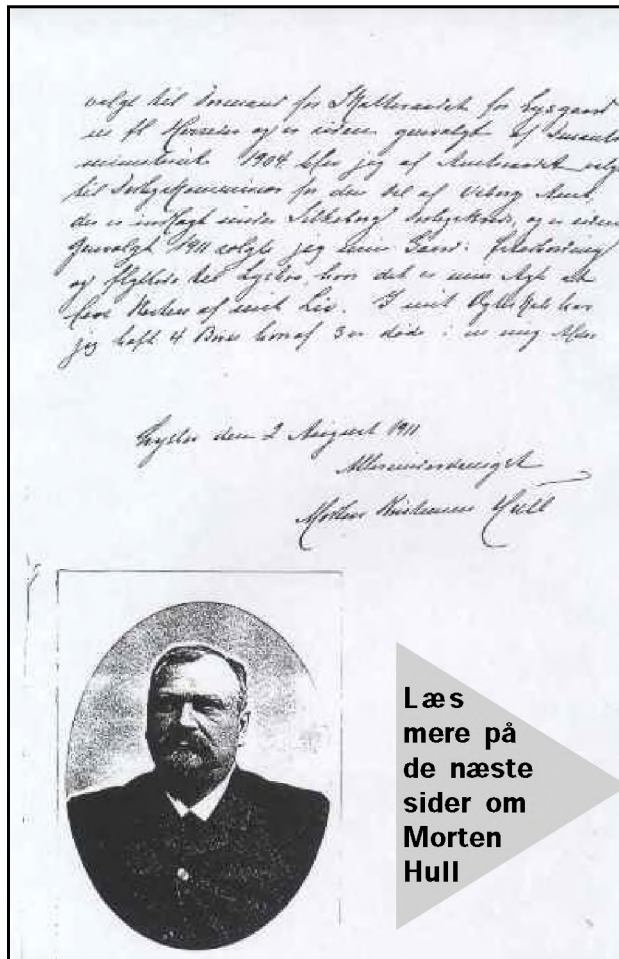 valgt til Formand for Skatteraadet for Lysgaard
m fl Herreder og er siden genvalgt af Finants
ministeriet. 1904 blev jeg af Amtsraadet valgt
til Kommissær for den Del af Viborg Amt
der er indlagt under Silkeborg og er siden
Genvalgt 1911 solgte jeg min Gaard i
og flyttede til Lysbro, hvor det er min Agt at
leve Resten af mit Liv. I mit Ægteskab har
jeg haft 4 Børn hvoraf 3 er døde i en ung Alder
Lysbro den 2 August 1911
Allerunderdanigst
Morten Christensen Hull
Læs
mere på
de næste
sider om
Morten
Hull